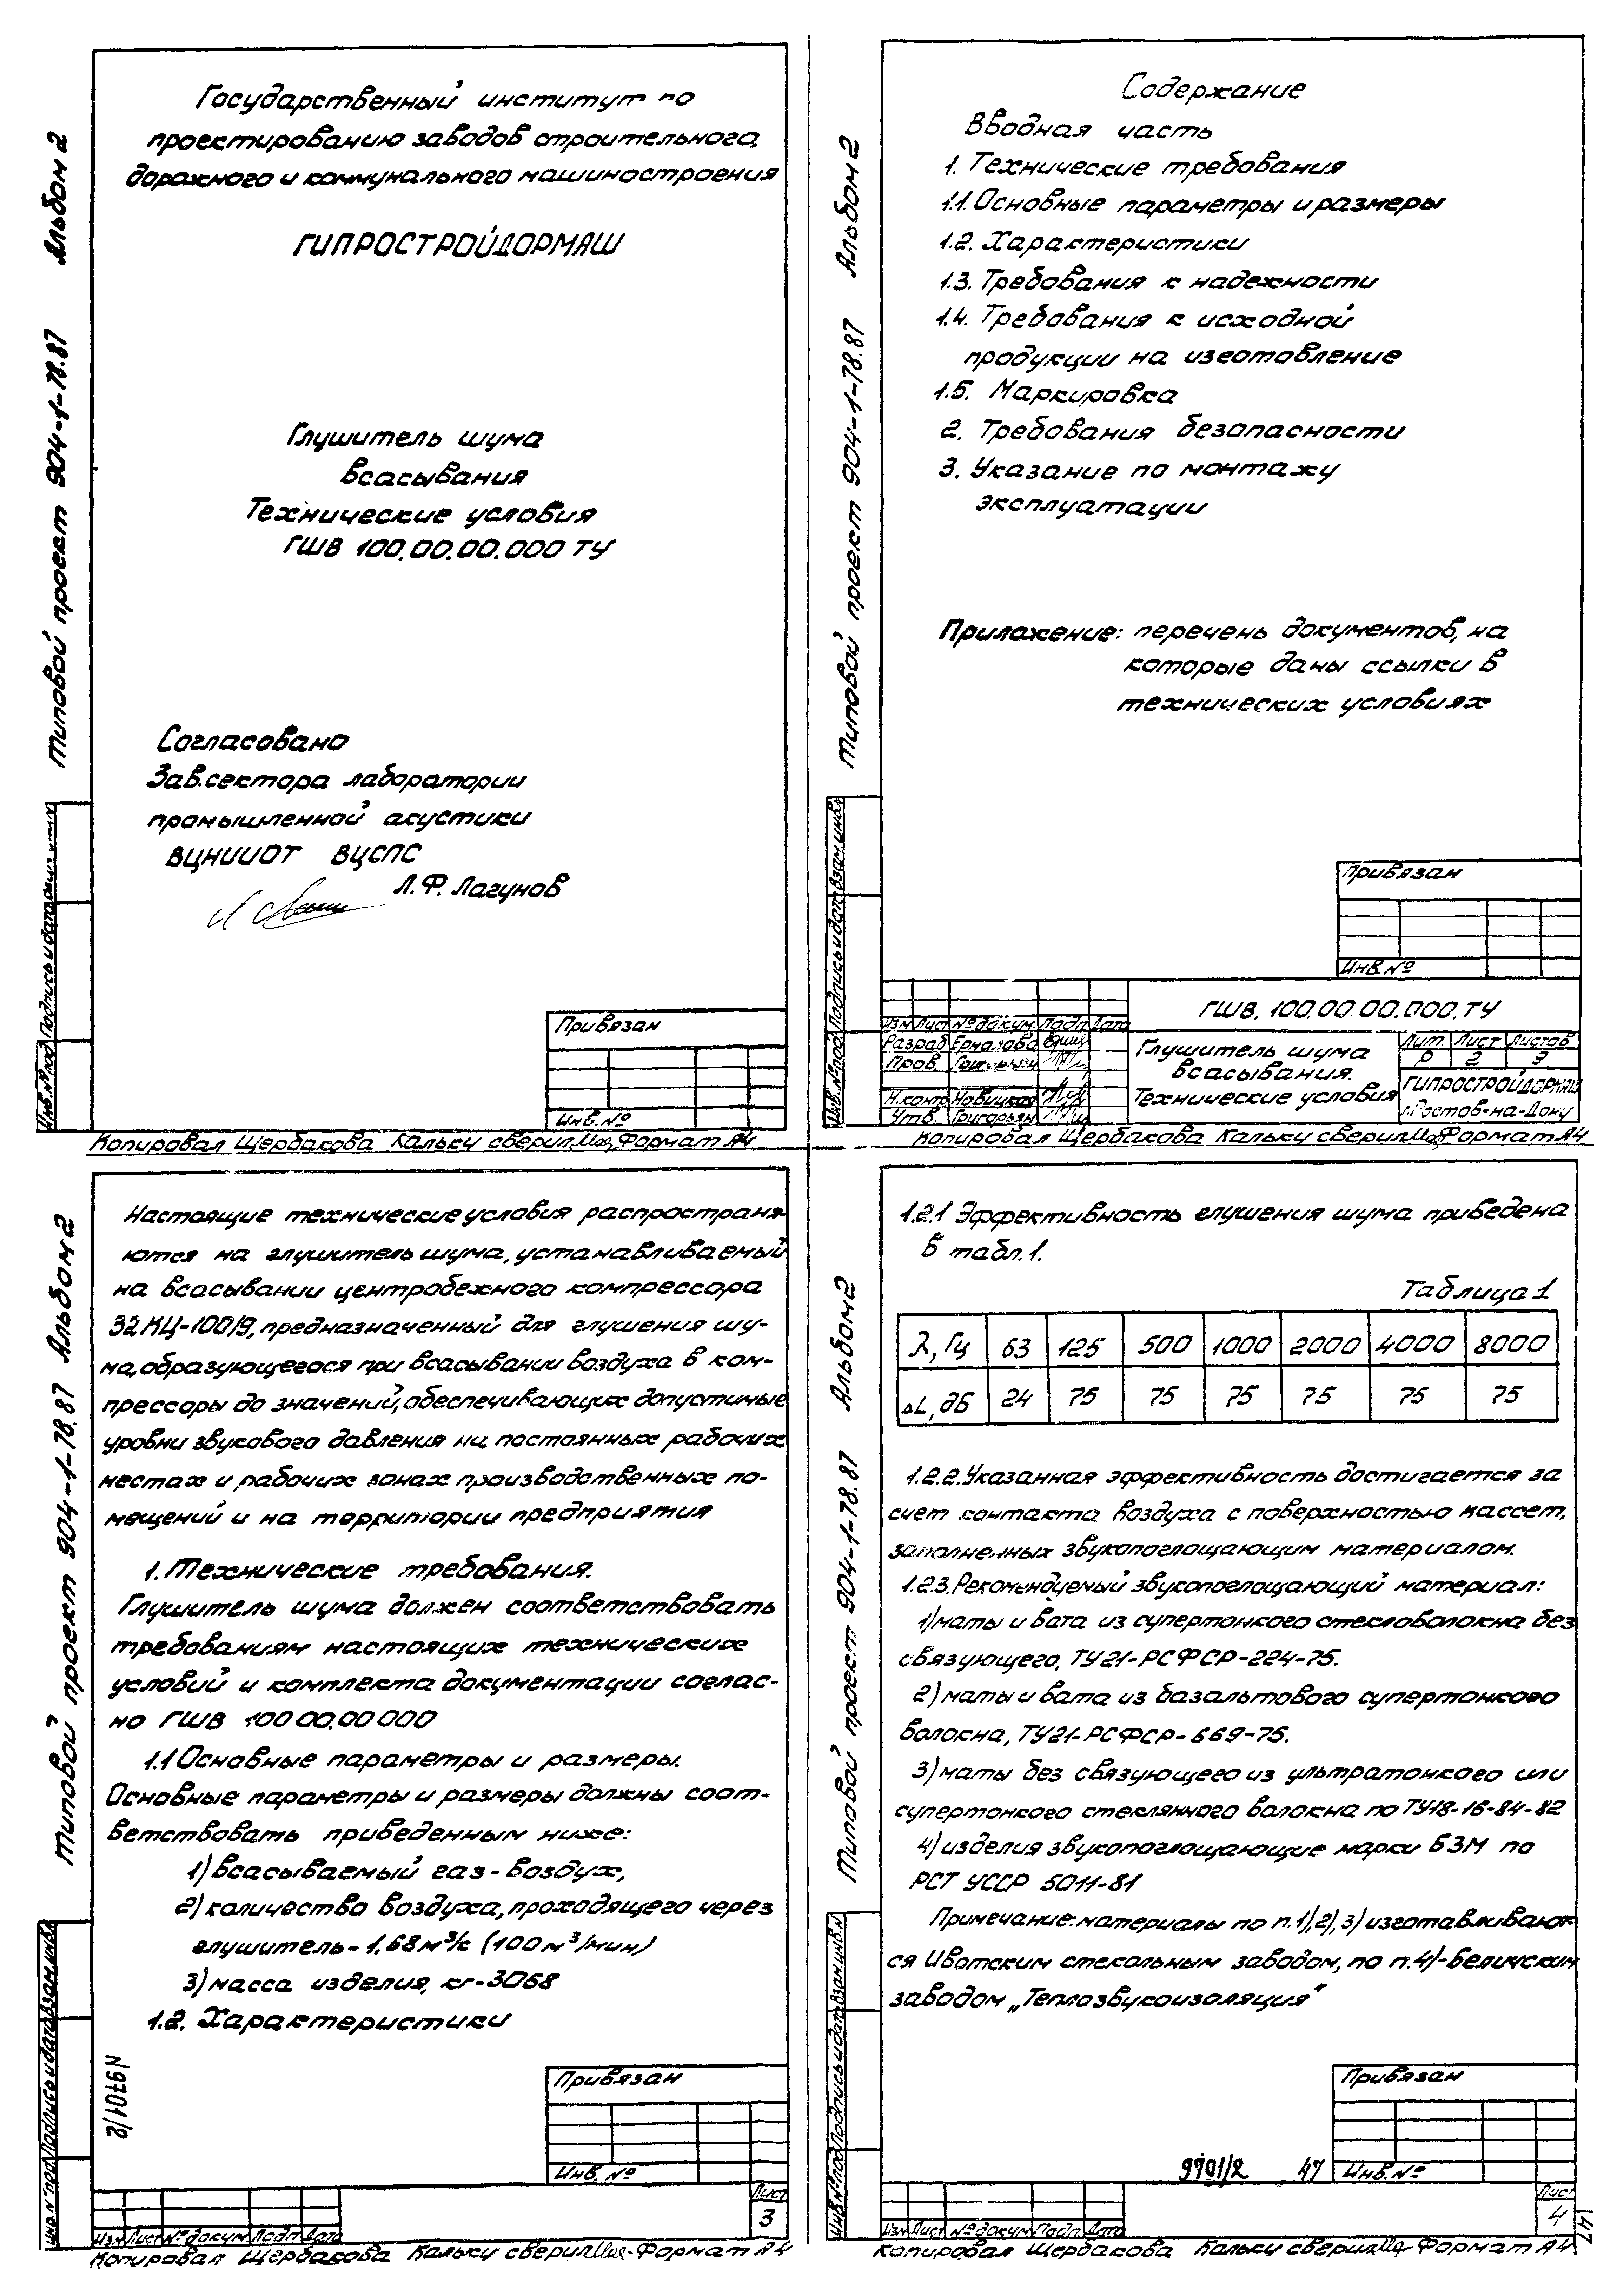 Типовой проект 904-1-78.87 Альбом 2
Государственный институт по
проектированию заводов строительного,
дорожного и коммунального машиностроения
ГИПРОСТРОЙДОРМАШ
Глушитель шума
всасывания
Технические условия
ГШВ 100.00.00.000 ТУ
Согласовано
Зав.сектора лаборатории
промышленной акустики
ВЦНИИОТ ВЦСПС
Л.Ф. Лагунов
Привязан
Инв.№
Инв.№ под Подпись и дата
Копировал Щербакова Кальку сверил Формат А4
Типовой проект 904-1-78.87 Альбом 2
Содержание
Вводная часть
1. Технические требования
1.1. Основные параметры и размеры
1.2. Характеристики
1.3. Требования к надежности
1.4. Требования к исходной
продукции на изготовление
1.5. Маркировка
2. Требования безопасности
3. Указание по монтажу
эксплуатации
Приложение: перечень документов, на
которые даны ссылки в
технических условиях
Привязан
Инв.№
Инв.№ под Подпись и дата Взам.инв.№
ГШВ. 100.00.00.000.ТУ
Изм Лист № докум. Подп Дата
Разраб Ермакова
Пров.
Н.контр Новицкая
Утв. Григорьян
Глушитель шума
всасывания.
Технические условия
Лит. Лист Листов
Р 2 9
ГИПРОСТРОЙДОРМАШ
г.Ростов-на-Дону
Копировал Щербакова Кальку сверил Формат А4
Типовой проект 904-1-78.87 Альбом 2
Настоящие технические условия распростран-
яются на глушитель шума, устанавливаемый
на всасывании центробежного компрессора
32 КЦ-100/9, предназначенный для глушения шу-
ма, образующегося при всасывании воздуха в ком-
прессоры до значений, обеспечивающих допустимые
уровни звукового давления на постоянных рабочих
местах и рабочих зонах производственных по-
мещений и на территории предприятия
1. Технические требования.
Глушитель шума должен соответствовать
требованиям настоящих технических
условий и комплекта документации соглас-
но ГШВ 100 00.00 000
1.1 Основные параметры и размеры.
Основные параметры и размеры должны соот-
ветствовать приведенным ниже:
1) всасываемый газ - воздух,
2) количество воздуха, проходящего через
глушитель - 1,68 м³/с (100 м³/мин)
3) масса изделия, кг - 3068
1.2. Характеристики
N9701/2
Привязан
Инв. №
Инв.№ под Подпись и дата Взам.инв.№
Изм Лист № докум Подп Дата
Лист
3
Копировал Щербакова Кальку сверил Формат А4
Типовой проект 904-1-78.87 Альбом 2
1.2.1 Эффективность глушения шума приведена
в табл.1.
Таблица 1
λ, Гц 63 125 500 1000 2000 4000 8000
ΔL, дБ 24 75 75 75 75 75 75
1.2.2. Указанная эффективность достигается за
счет контакта воздуха с поверхностью кассет,
заполненных звукопоглощающим материалом.
1.2.3. Рекомендуемый звукопоглощающий материал:
1) маты и вата из супертонкого стекловолокна без
связующего, ТУ 21-РСФСР-224-75.
2) маты и вата из базальтового супертонкого
волокна, ТУ21-РСФСР-669-75.
3) маты без связующего из ультратонкого или
супертонкого стеклянного волокна по ТУ18-16-84-82
4) изделия звукопоглощающие марки БЗМ по
РСТ УССР 5011-81
Примечание: материалы по п.1), 2), 3) изготавливают-
ся Ивотским стекольным заводом, по п.4) - Беличским
заводом „Теплозвукоизоляция"
9701/2 47
Привязан
Инв.№
Инв.№ под Подпись и дата Взам.инв.№
Изм Лист № докум Подп Дата
Лист
4
147
Копировал Щербакова Кальку сверил Формат А4